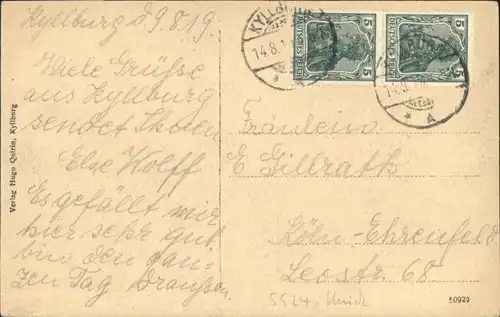 Kyllburg d 9.8.19.
Viele Grüße
aus Kyllburg
sendet
Else Wolff
Es gefällt mir
hier sehr gut
bin den gan-
zen Tag Draußen.
Fräulein
E Gillrath
Köln-Ehrenfeld
Leostr. 68
Verlag Hugo Quirin, Kyllburg
DEUTSCHES REICH
5 5
5 5
KYLLBURG
14.8.1
50929